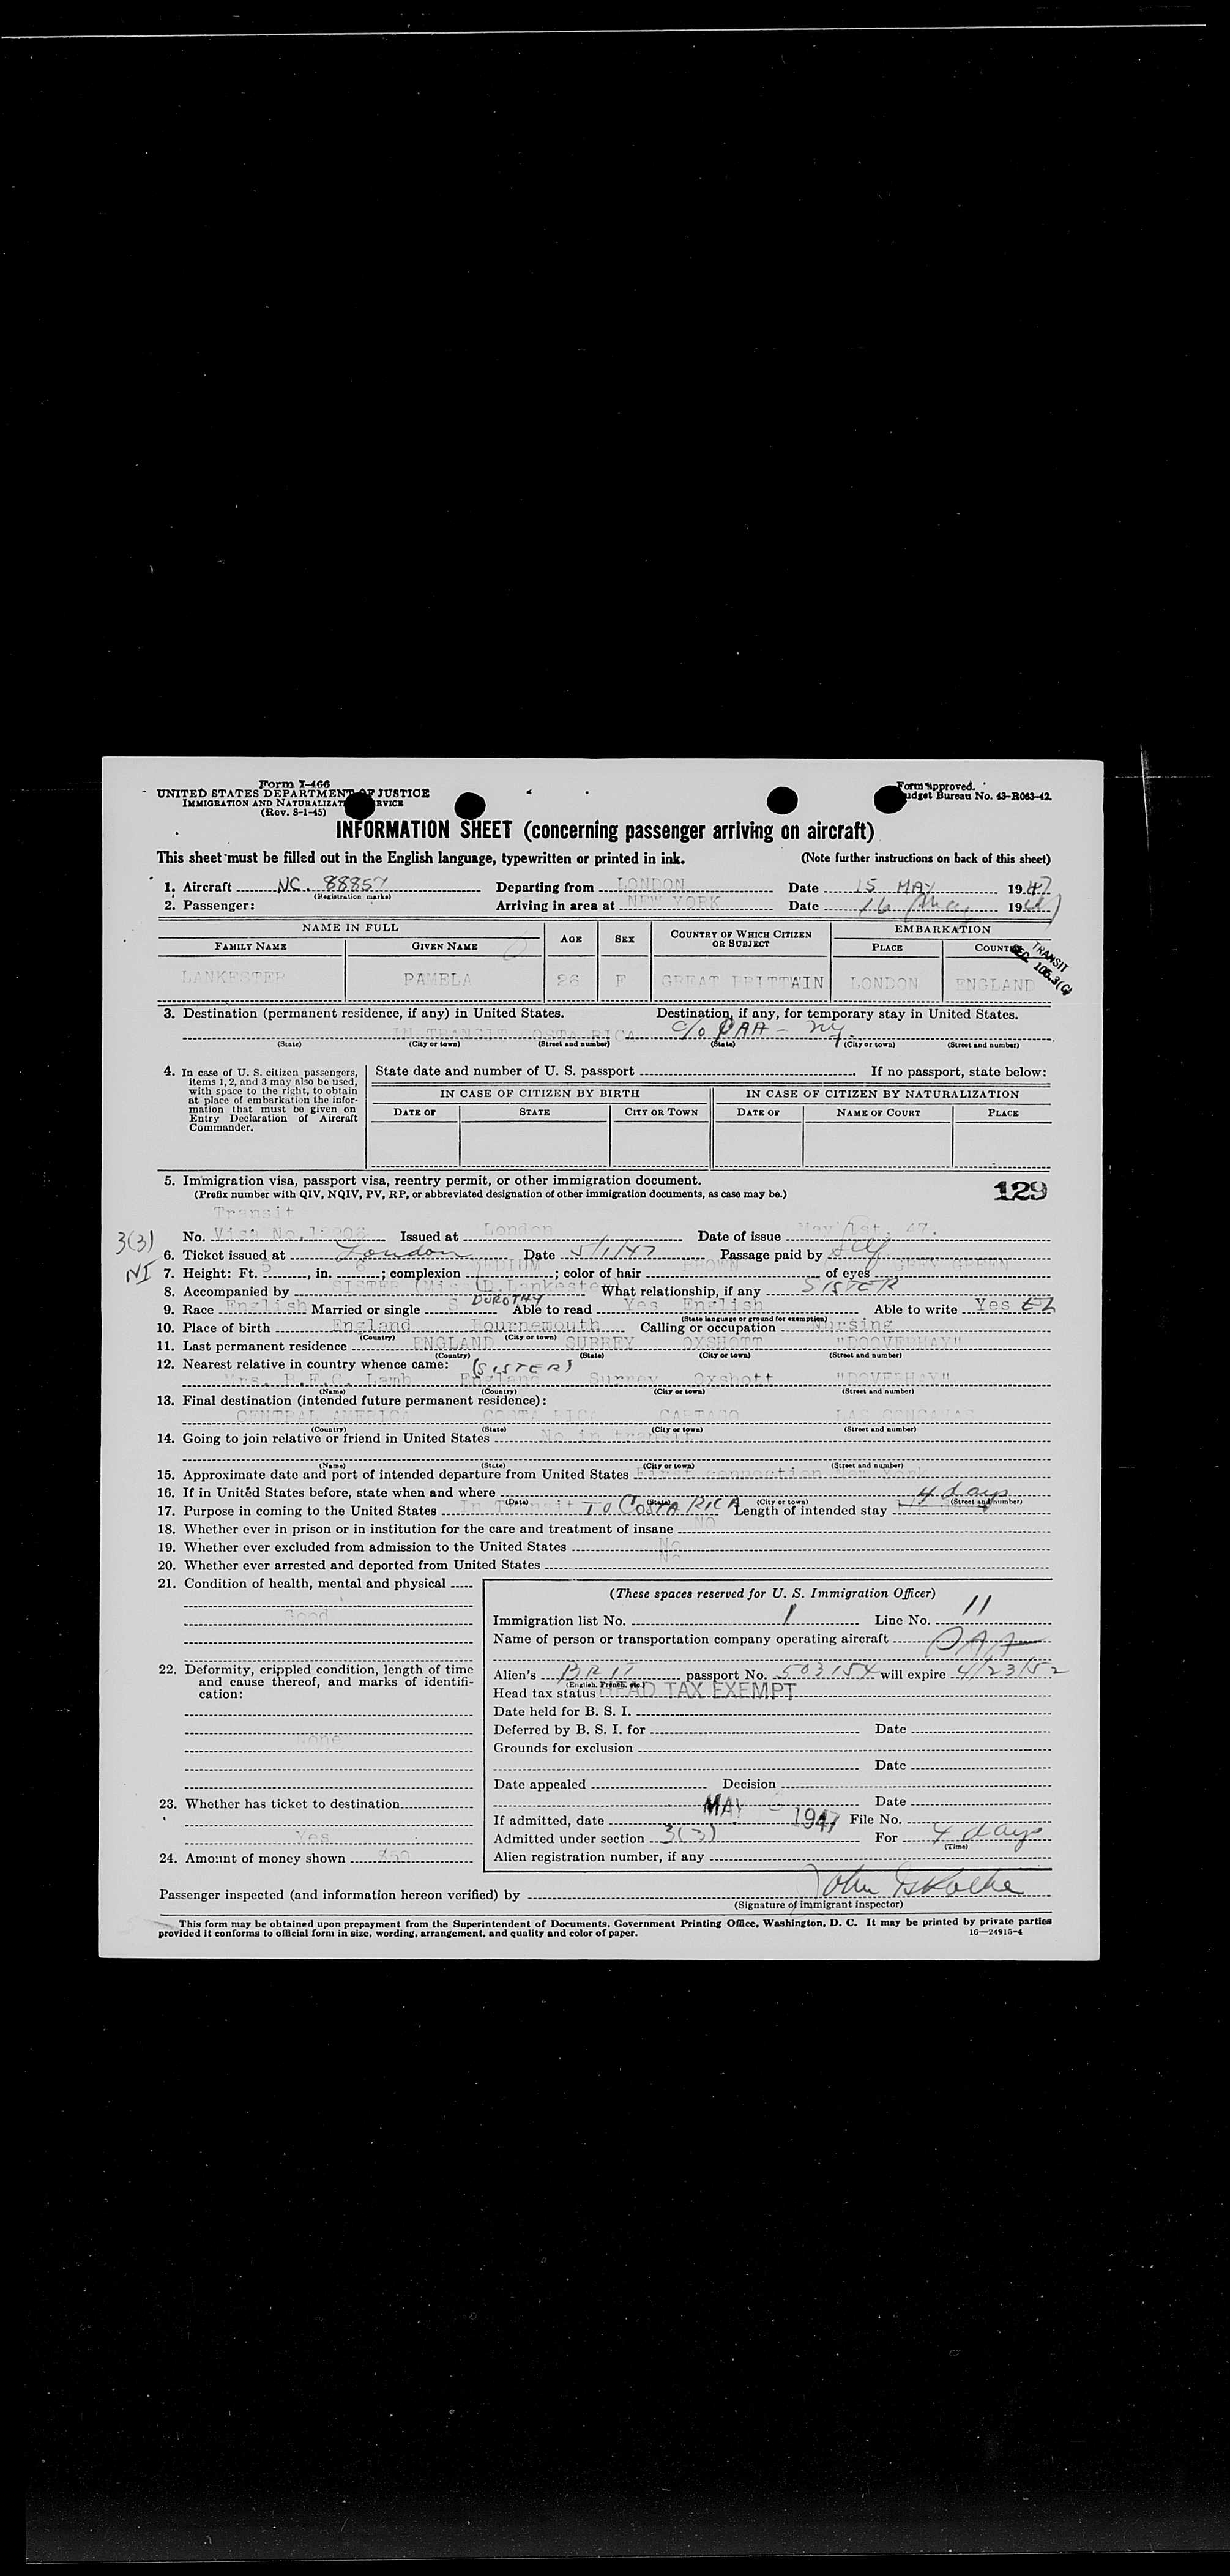 Form I-466
UNITED STATES DEPARTMENT OF JUSTICE
IMMIGRATION AND NATURALIZAT RVICE
(Rev. 8-1-45)
Form approved.
udget Bureau No. 43-R063-42.
INFORMATION SHEET (concerning passenger arriving on aircraft)
This sheet must be filled out in the English language, typewritten or printed in ink. (Note further instructions on back of this sheet)
1. Aircraft NC. 88857 Departing from LONDON Date 15 MAY 1947
(Registration marks)
2. Passenger: Arriving in area at NEW YORK Date 16 May 1947
NAME IN FULL AGE SEX COUNTRY OF WHICH CITIZEN OR SUBJECT EMBARKATION
FAMILY NAME GIVEN NAME PLACE COUNT
TRANSIT
SEC 105.3(C)
LANKESTER PAMELA 26 F GREAT BRITTAIN LONDON ENGLAND
3. Destination (permanent residence, if any) in United States. Destination, if any, for temporary stay in United States.
IN TRANSIT COSTA RICA c/o PAA - ny.
(State) (City or town) (Street and number) (State) (City or town) (Street and number)
4. In case of U. S. citizen passengers, items 1, 2, and 3 may also be used, with space to the right, to obtain at place of embarkation the information that must be given on Entry Declaration of Aircraft Commander.
State date and number of U. S. passport If no passport, state below:
IN CASE OF CITIZEN BY BIRTH IN CASE OF CITIZEN BY NATURALIZATION
DATE OF STATE CITY OR TOWN DATE OF NAME OF COURT PLACE
5. Immigration visa, passport visa, reentry permit, or other immigration document.
(Prefix number with QIV, NQIV, PV, RP, or abbreviated designation of other immigration documents, as case may be.)
129
Transit
No. Visa No. Issued at London Date of issue May 1st. 47.
3(3)
6. Ticket issued at London Date 5/1/47 Passage paid by Self
NI
7. Height: Ft. 5, in. 6; complexion MEDIUM; color of hair BROWN of eyes GREY GREEN
8. Accompanied by SISTER (Miss D. Lankester What relationship, if any SISTER
DOROTHY
9. Race English Married or single S Able to read Yes English Able to write Yes
(State language or ground for exemption)
10. Place of birth England Bournemouth Calling or occupation Nursing
(Country) (City or town)
11. Last permanent residence ENGLAND SURREY OXSHOTT "DOOVERHAY"
(Country) (State) (City or town) (Street and number)
12. Nearest relative in country whence came: (SISTER)
Mrs. R.F.C. Lamb England Surrey Oxshott "DOVERHAY"
(Name) (Country) (City or town) (Street and number)
13. Final destination (intended future permanent residence):
CENTRAL AMERICA COSTA RICA CARTAGO LAS CONCAVAS
(Country) (State) (City or town) (Street and number)
14. Going to join relative or friend in United States No in transit
(Name) (State) (City or town) (Street and number)
15. Approximate date and port of intended departure from United States First connection New York
16. If in United States before, state when and where
(Date) (State) (City or town) (Street and number)
4 days
17. Purpose in coming to the United States In Transit TO COSTA RICA Length of intended stay
18. Whether ever in prison or in institution for the care and treatment of insane NO
19. Whether ever excluded from admission to the United States No
20. Whether ever arrested and deported from United States No
21. Condition of health, mental and physical
Good
22. Deformity, crippled condition, length of time and cause thereof, and marks of identification:
None
23. Whether has ticket to destination
Yes
24. Amount of money shown
(These spaces reserved for U. S. Immigration Officer)
Immigration list No. 1 Line No. 11
Name of person or transportation company operating aircraft PAA
Alien's BRIT passport No. 503154 will expire 4/23/52
(English, French, etc.)
Head tax status HEAD TAX EXEMPT
Date held for B. S. I.
Deferred by B. S. I. for Date
Grounds for exclusion
Date
Date appealed Decision
Date
If admitted, date MAY 6 1947 File No.
Admitted under section 3(3) For 4 days
(Time)
Alien registration number, if any
Passenger inspected (and information hereon verified) by John
(Signature of immigrant inspector)
This form may be obtained upon prepayment from the Superintendent of Documents, Government Printing Office, Washington, D. C. It may be printed by private parties
provided it conforms to official form in size, wording, arrangement, and quality and color of paper. 16—24915-4